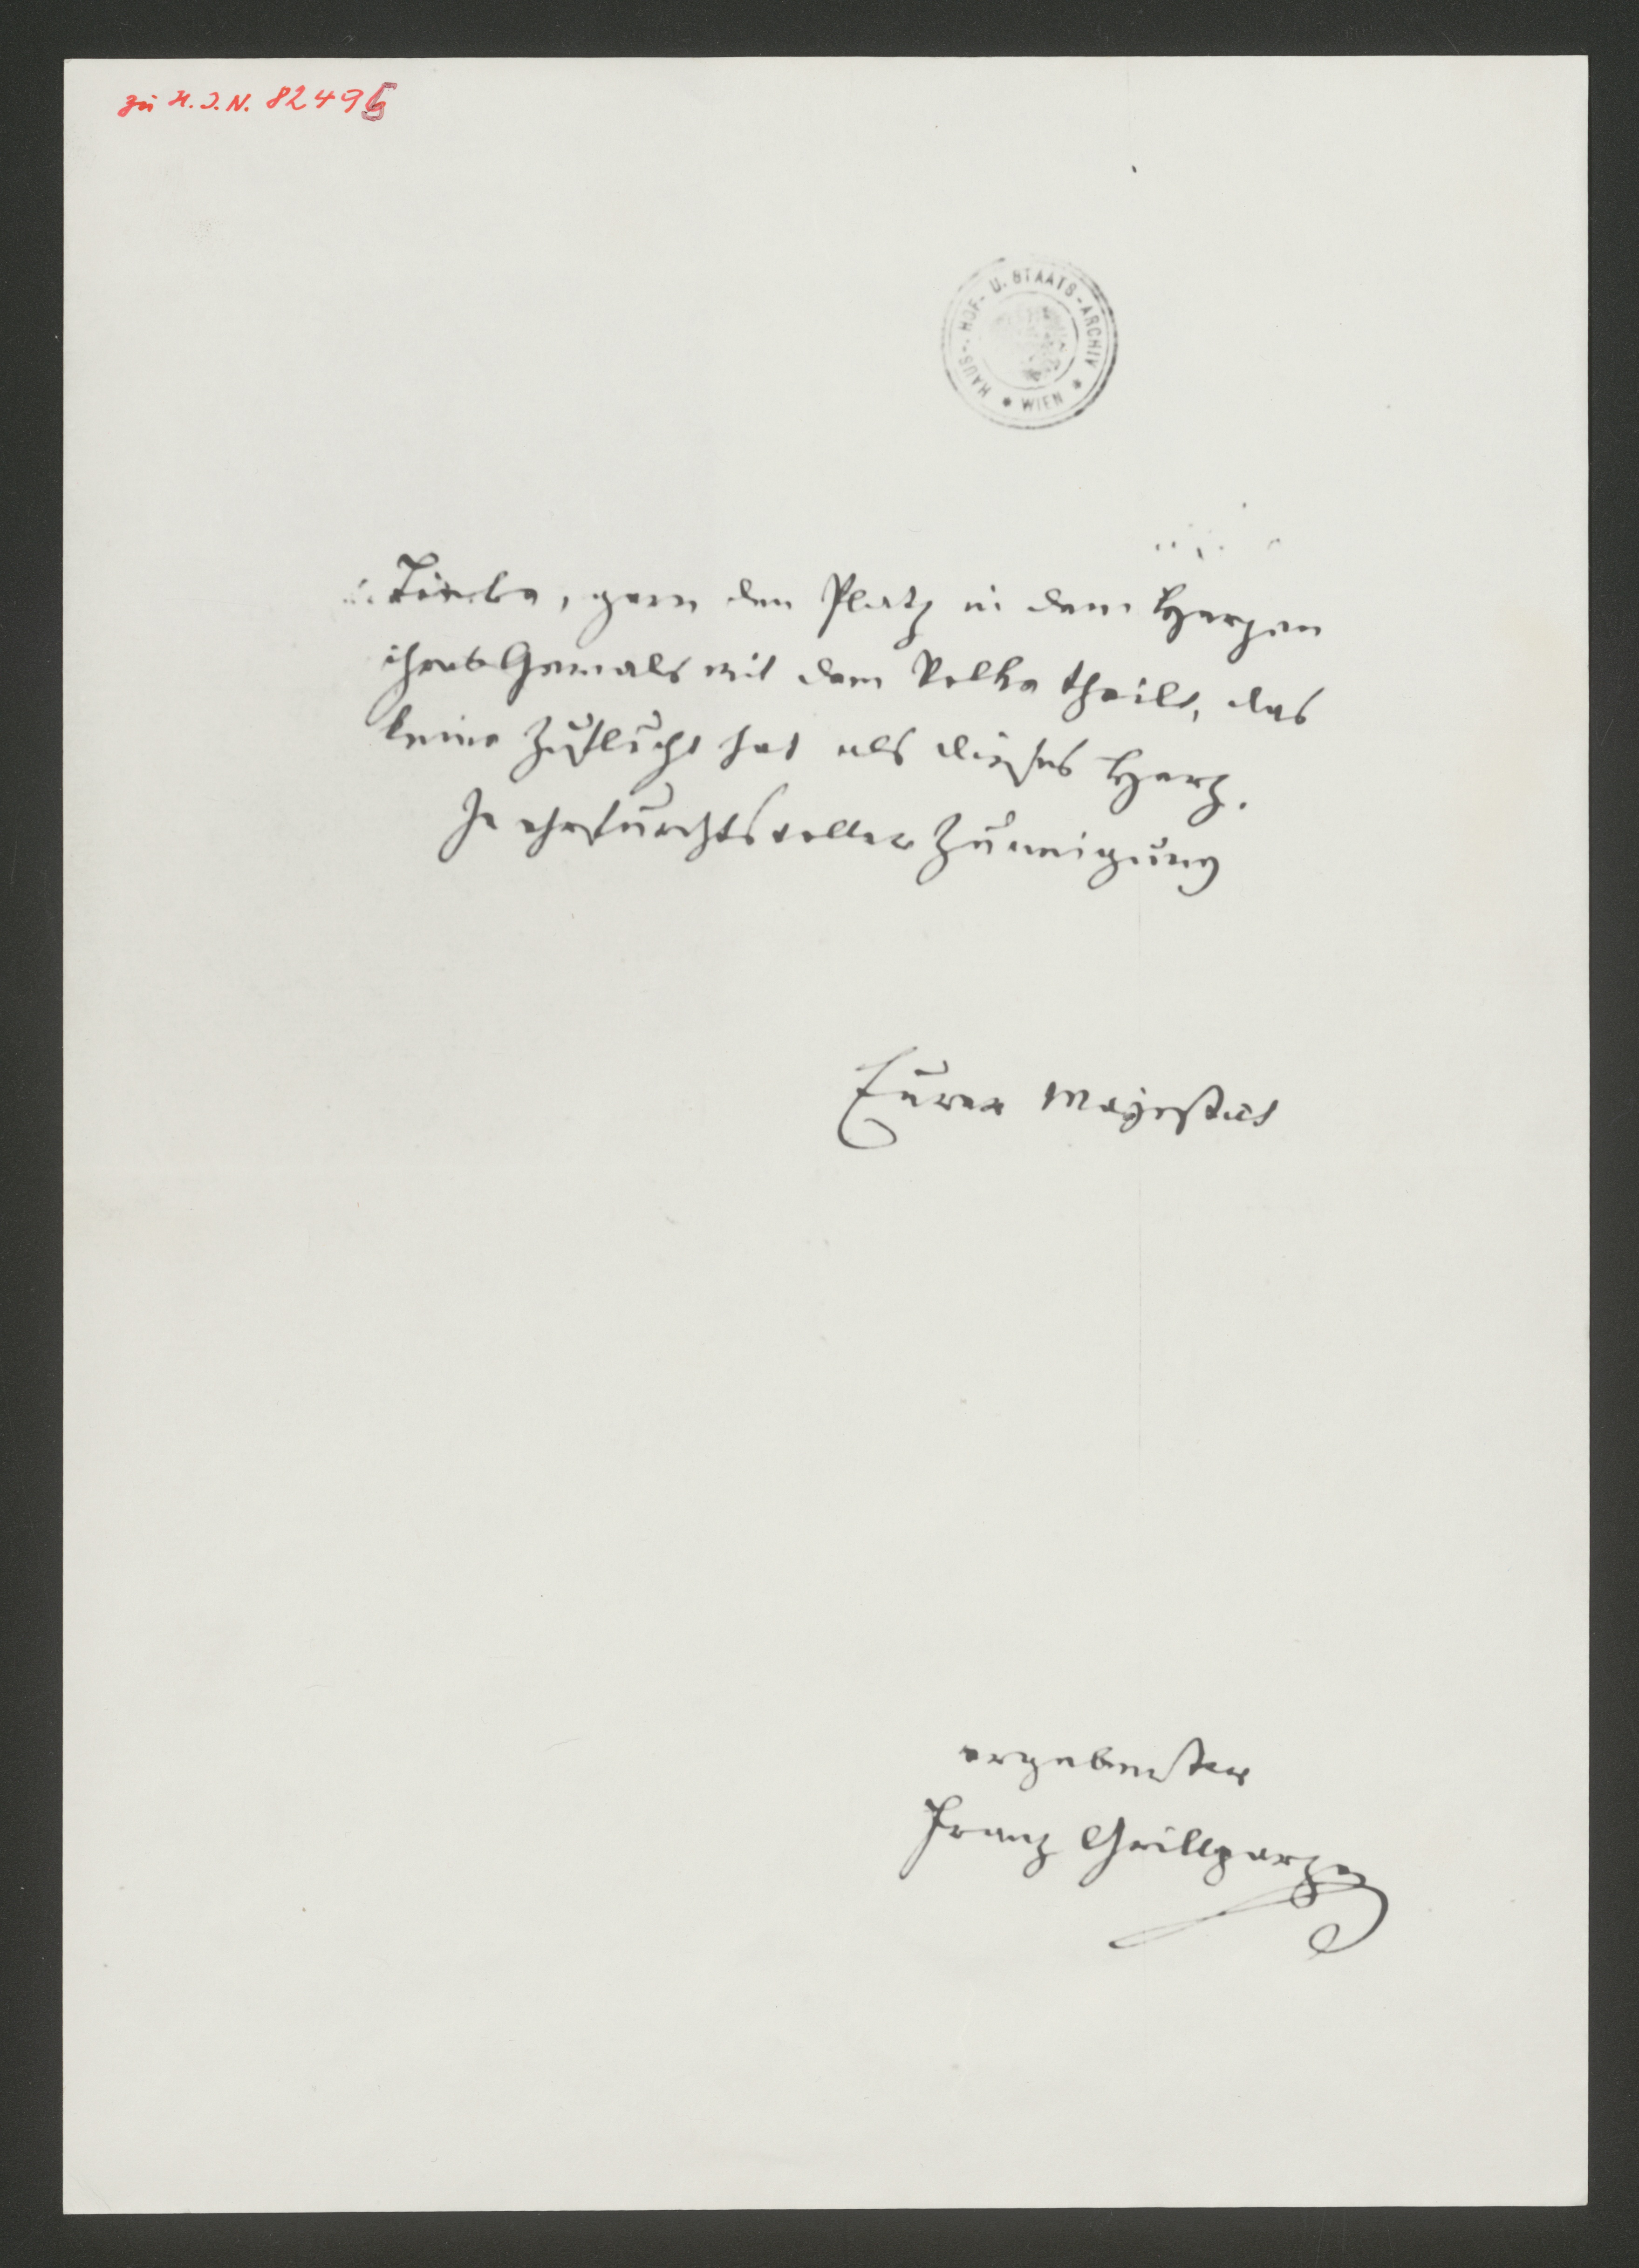 zu H. I. N. 82496
HAUS-, HOF- U. STAATS-ARCHIV * WIEN *
Liebe, gern den Platz in dem Herzen
ihres Gemals mit dem Volke theilt, das
keine Zuflucht hat als dieses Herz.
In ehrfurchtsvoller Zuneigung
Eurer Majestät
ergebenster
Franz Grillparzer